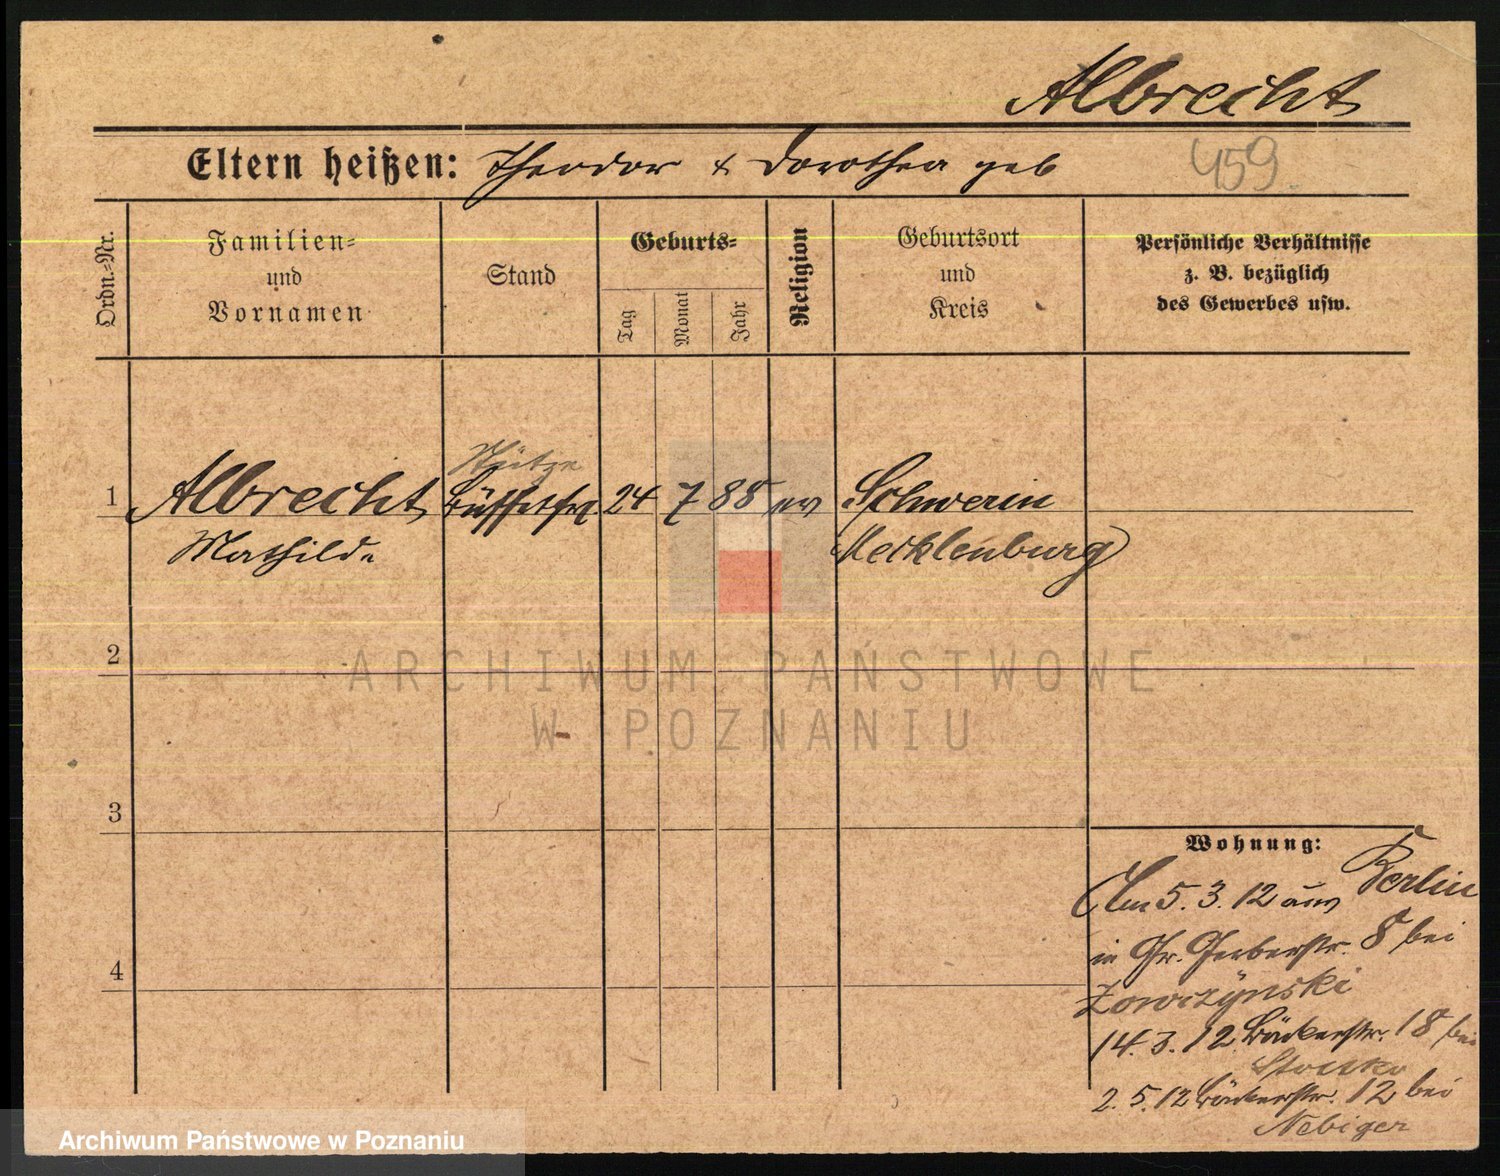 Albrecht
Eltern heißen: Theodor & Dorothea geb
459.
Ordn.-Nr.
Familien-
und
Vornamen
Stand
Geburts-
Tag
Monat
Jahr
Religion
Geburtsort
und
Kreis
Persönliche Verhältnisse
z. B. bezüglich
des Gewerbes usw.
Stütze
1 Albrecht Büffetfrl. 24 7 88 ev Schwerin
Mathilde Mecklenburg
2
ARCHIWUM PAŃSTWOWE
W POZNANIU
3
Wohnung:
Am 5.3.12 aus Berlin
in Gr. Gerberstr. 8 bei
14.3.12 Bäckerstr. 18 bei
4
2.5.12 Bäckerstr. 12 bei
Nebiger
Archiwum Państwowe w Poznaniu